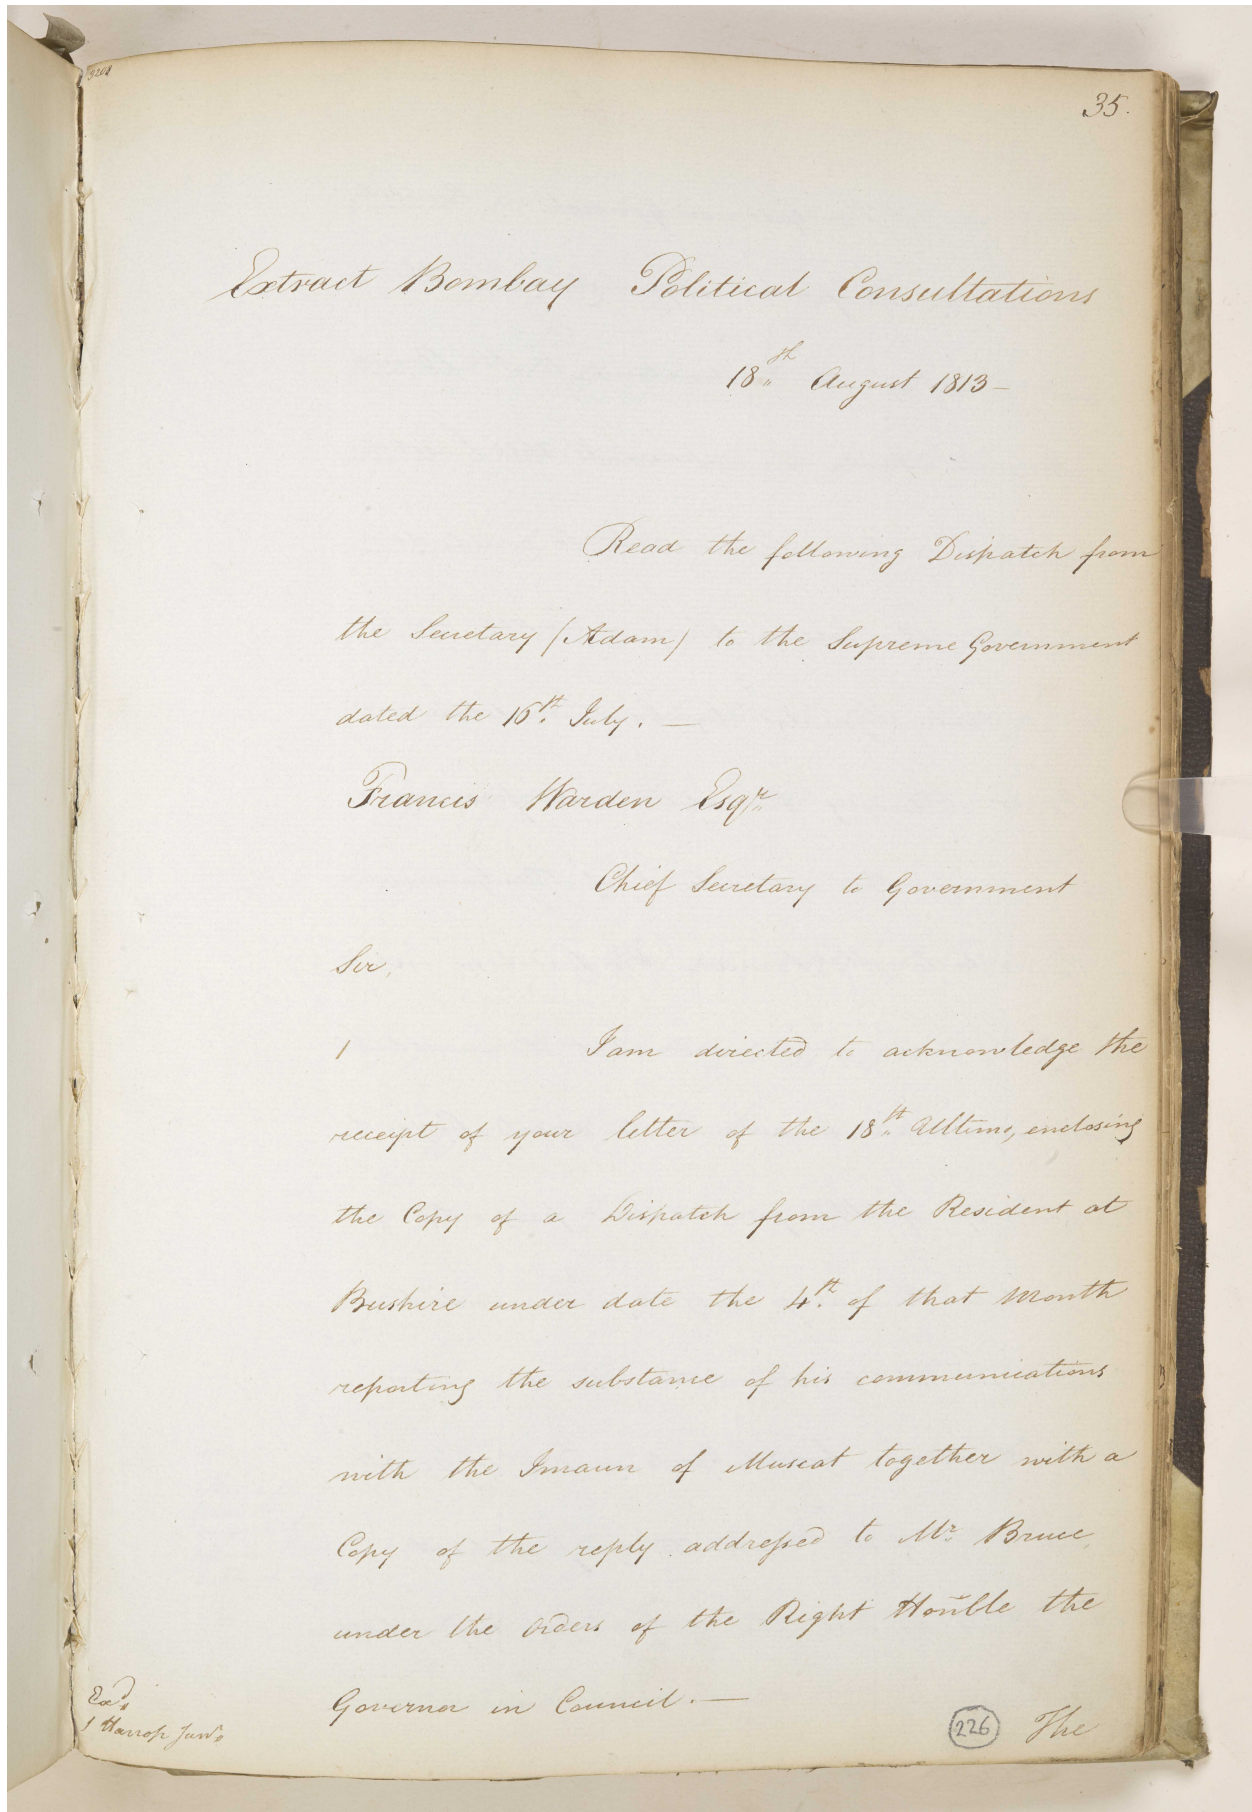 35.
Extract Bombay Political Consultations
18th August 1813 —
Read the following Dispatch from
the Secretary (Adam) to the Supreme Government
dated the 16th July. —
Francis Warden Esqr.
Chief Secretary to Government
Sir,
1 I am directed to acknowledge the
receipt of your letter of the 18th Ultimo, enclosing
the Copy of a Dispatch from the Resident at
Bushire under date the 4th of that Month
reporting the substance of his communications
with the Imaun of Muscat together with a
Copy of the reply addressed to Mr. Bruce,
under the Orders of the Right Honble the
Governor in Council. —
Exd.
J Harrop Junr.
226 The